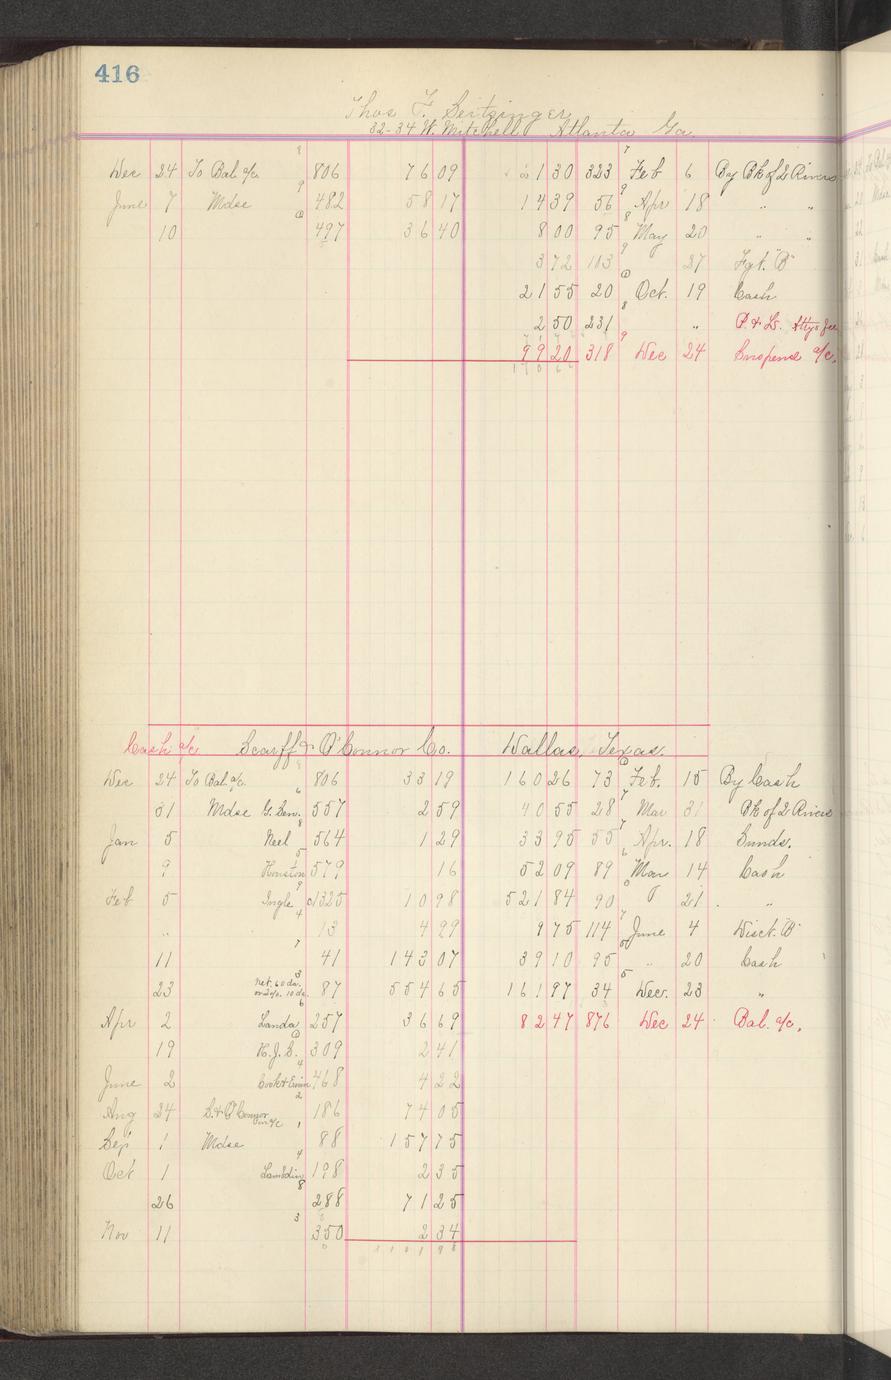 416
Thos F. Seitzinger
32-34 W. Mitchell Atlanta Ga
Dec 24 To Bal a/c 806 76 09 21 30 323 Feb 6 By Bk of 2 Rivers
June 7 Mdse 482 58 17 14 39 56 Apr 18 " "
10 497 36 40 8 00 95 May 20 " "
3 72 113 27 Fgt. "B"
21 55 20 Oct. 19 Cash
2 50 231 " P. & L. Attys fee
99 20 318 Dec 24 Suspense a/c.
170 66
Cash a/c Scarff & O'Connor Co. Dallas, Texas.
Dec 24 To Bal. a/c. 806 33 19 160 26 73 Feb. 15 By Cash
31 Mdse G. Gen. 557 2 59 40 55 28 Mar 31 Bk of 2 Rivers
Jan 5 Neel 564 1 29 33 95 55 Apr. 18 Sunds.
9 Houston 579 16 52 09 89 May 14 Cash
Feb 5 Ingle 1325 10 98 521 84 90 21 "
" 13 4 99 9 75 114 June 4 Disct. "B"
11 41 143 07 39 10 95 " 20 Cash
23 Net. 60 da. or 2% 10 da. 87 554 65 161 97 34 Dec. 23 "
Apr 2 Landa 257 36 69 82 47 876 Dec 24 Bal. a/c.
19 H. J. S. 309 2 41
June 2 468 4 22
Aug 24 S. & O'Connor 186 74 05
Sep 1 Mdse 88 157 75
Oct 1 Lambdin 198 2 35
26 288 71 25
Nov 11 350 2 34
1101 98